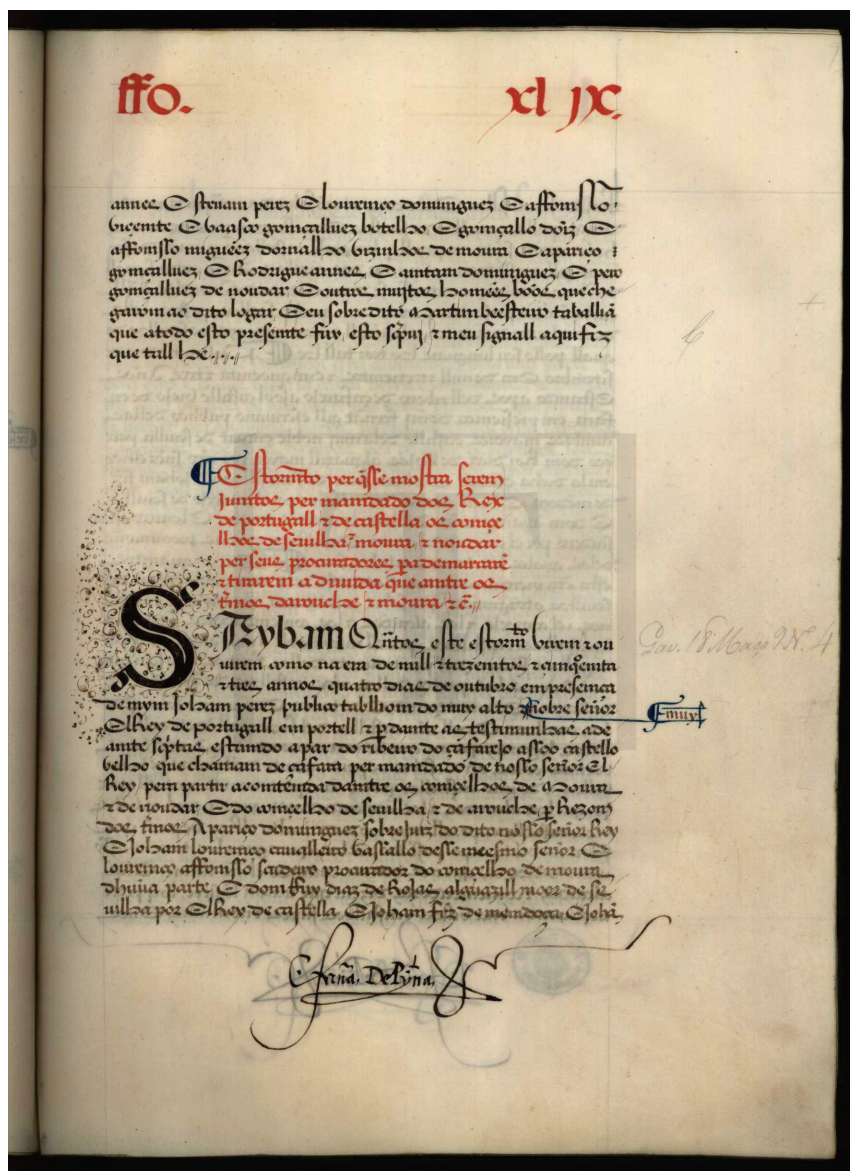 ffo. xl ix.
annes E stevam perez E lourenço dominguez E affomsso
vicemte E vaasco gomçalluez botelho E gomçallo doiz E
affomsso miguéez dornalho vizinhos de moura E apariço
gomçalluez E Rodrigue annes E amtam dominguez E pero
gomçalluez de noudar E outros mujtos homeẽs boos que che
garom ao dito logar E eu sobre dito Martim beesteiro taballiã
que a todo esto presemte fuy esto scpuj τ meu signall aqui fiz
que tall he
Estormto per q̃sse mostra serem
Jumtos per mamdado dos Rex
de portugall τ de castella os comçe
lhos de sevilha τ moura τ noudar
per seus procuradores pa demarcarẽ
τ tirarem a duvida que amtre os
t̃mos darouche τ moura τ c̃
SAybam Q̃ntos este estormto virem τ ou
uirem como na era de mill τ trezemtos τ çimq̃emta
τ tres annos quatro dias de outubro em presemça
de mym Joham perez publico tabbliom do muy alto τ nobre señor
muy
ElRey de portugall em portell τ p damte as testimunhas a de
amte scptas estamdo a par do ribeiro do çafarejo assoo castello
velho que chamam de çafara per mamdado de nosso señor El
Rey pera partir a comtẽmda damtre os comçelhos de Moura
τ de noudar E do comcelho de sevilha τ de arouche p Rezom
dos t̃mos Apariço dominguez sobre juiz do dito nosso señor Rey
E Joham louremço cavalleiro vassallo desse meesmo señor E
louremço affomsso sardeiro procurador do comçelho de moura
dhuũa parte E dom ffuy diaz de Rojas alguazill moor de se
vilha por ElRey de castella E Joham frz de memdoça E Johã
Gav. 18 Maço 9 N. 4